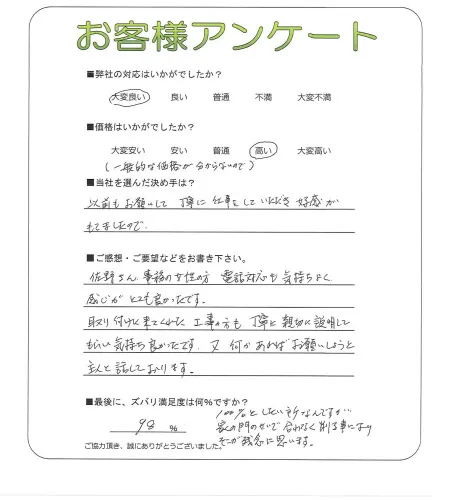 お客様アンケート
■弊社の対応はいかがでしたか？
大変良い 良い 普通 不満 大変不満
■価格はいかがでしたか？
大変安い 安い 普通 高い 大変高い
(一般的な価格が分からないので)
■当社を選んだ決め手は？
以前もお願いして 丁寧に仕事をしていただき 好感が
もてましたので。
■ご感想・ご要望などをお書き下さい。
佐野さん、事務の女性の方 電話対応も気持ちよく
感じがとても良かったです。
取り付けに来てくれた 工事の方も 丁寧に 親切に説明して
もらい 気持ち良かったです。又 何かあればお願いしようと
主人と話しております。
■最後に、ズバリ満足度は何%ですか？
98 %
100%としたい所なんですが
家の門の 合わなく 削る事になり
そこが残念に思います。
ご協力頂き、誠にありがとうございました。